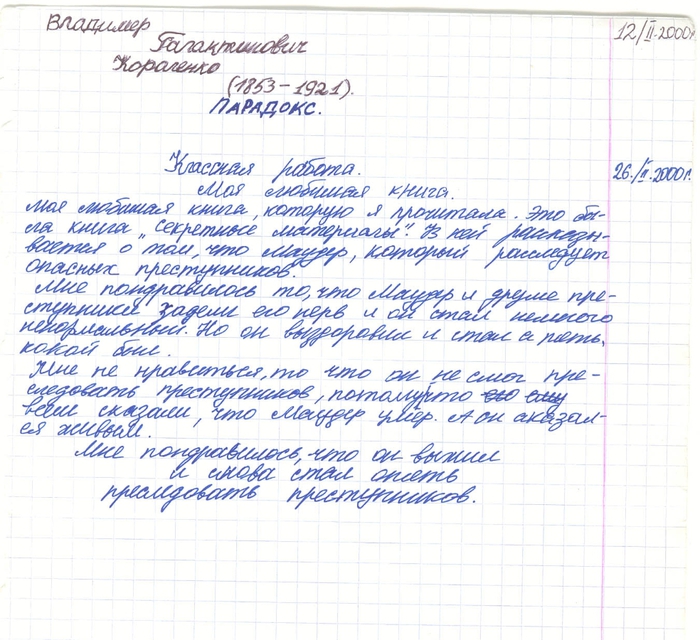 Владимер
12/II.2000г
Галактинович
Кораленко
(1853-1921).
ПАРАДОКС.
Классная работа.
26./II.2000г.
Моя любимая книга.
Моя любимая книга, которую я прочитала. Это бы-
ла книга „Секретные материалы". В ней расказы-
вается о том, что Маулдер, который расследует
опасных преступников.
Мне пондравилось то, что Маулдер и другие пре-
ступники задели его нерв и он стал немного
ненормальный. Но он выздоровил и стал а петь,
какой был.
Мне не нравиться, то что он не смог пре-
следовать преступников, потомучто ему
всем сказали, что Маулдер умер. А он аказал-
ся живым.
Мне пондравилось, что он выжил
и снова стал опеть
преследовать преступников.